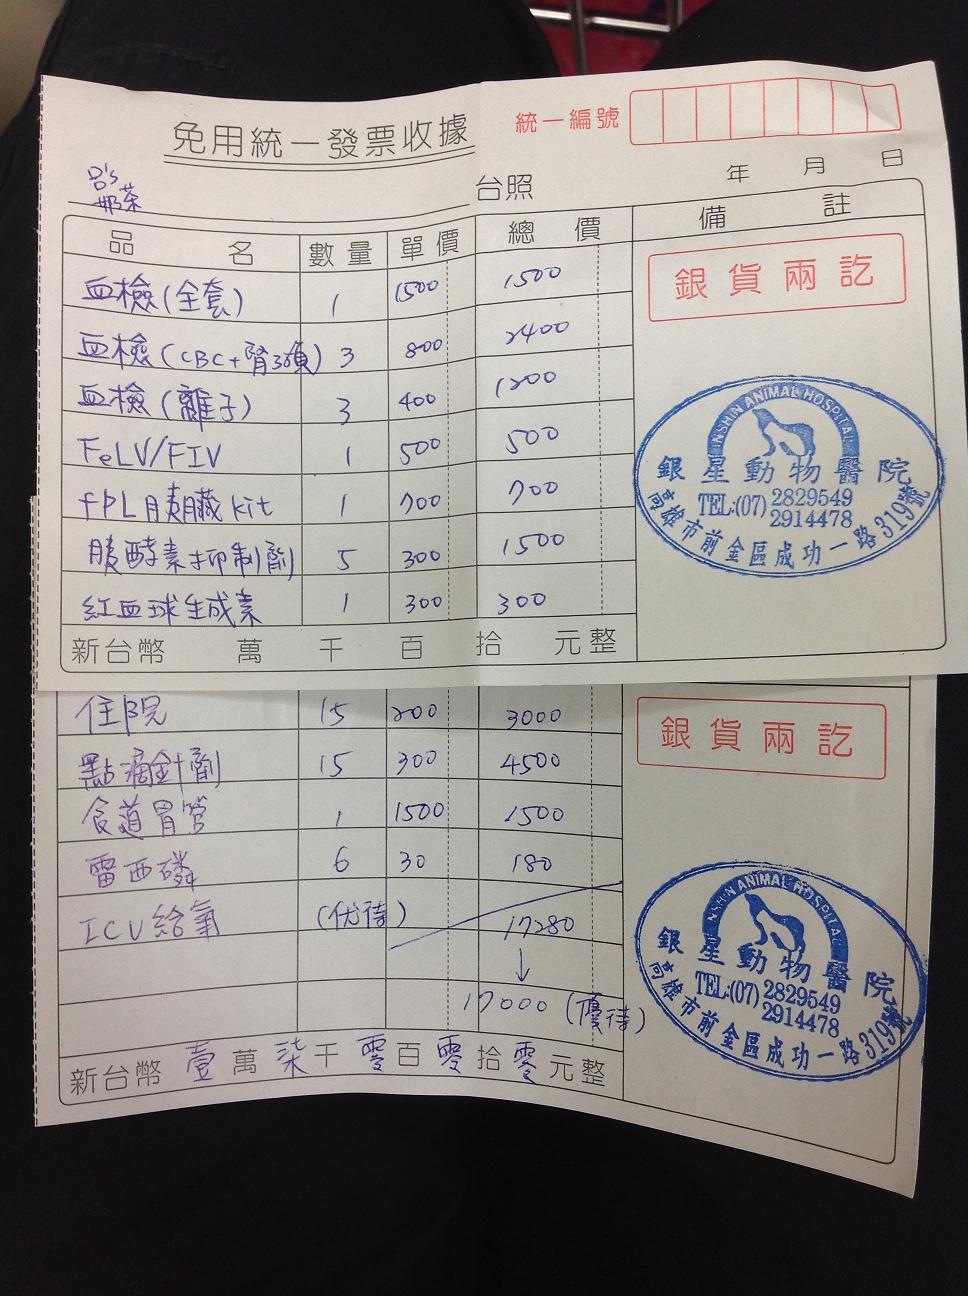 免用統一發票收據
統一編號
呂's
奶茶
台照
年 月 日
品 名 數量 單價 總價 備註
血檢(全套) 1 1500 1500
血檢(CBC+腎3項) 3 800 2400
血檢(離子) 3 400 1200
FeLV/FIV 1 500 500
fPL胰臟kit 1 700 700
胰酵素抑制劑 5 300 1500
紅血球生成素 1 300 300
新台幣 萬 千 百 拾 元整
銀貨兩訖
INSHIN ANIMAL HOSPITAL
銀星動物醫院
TEL:(07) 2829549
2914478
高雄市前金區成功一路319號
住院 15 200 3000
點滴針劑 15 300 4500
食道胃管 1 1500 1500
雷西磷 6 30 180
ICU給氧 (优待) 17280
↓
17000 (優待)
新台幣 壹 萬 柒 千 零 百 零 拾 零 元整
銀貨兩訖
INSHIN ANIMAL HOSPITAL
銀星動物醫院
TEL:(07) 2829549
2914478
高雄市前金區成功一路319號